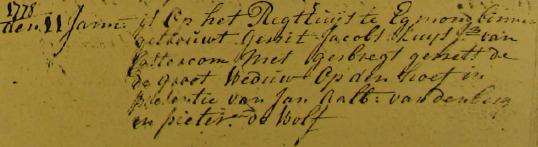 1778
den 11 Janu: is Op het Regthuijs te Egmond binnen
getrouwt Gerrit Jacobs Kuys van
Castercom met gerregt de
de groot Weduw Op den hoef in
presentie van Jan Aalb: van den berg
en pieter de Wolf